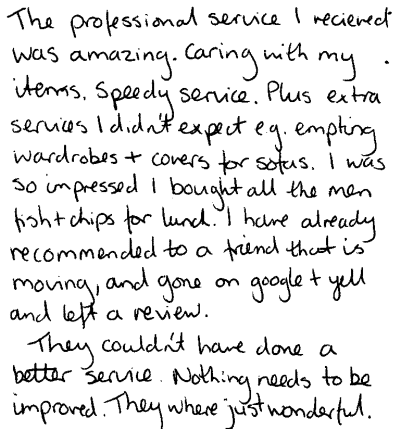 The professional service I recieved
was amazing. Caring with my
items. Speedy service. Plus extra
services I didn't expect eg. empting
wardrobes + covers for sofas. I was
so impressed I bought all the men
fish+chips for lunch. I have already
recommended to a friend that is
moving, and gone on google + yell
and left a review.
They couldn't have done a
better service. Nothing needs to be
improved. They where just wonderful.